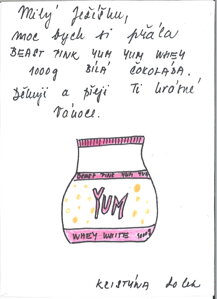 Milý Ježíšku,
moc bych si přála
BEAST PINK YUM YUM WHEY
1000g BÍLÁ ČOKOLÁDA.
Děkuji a přeji Ti krásné
Vánoce.
BEAST PINK YUM YUM
YUM
WHEY WHITE 1000g
KRISTÝNA